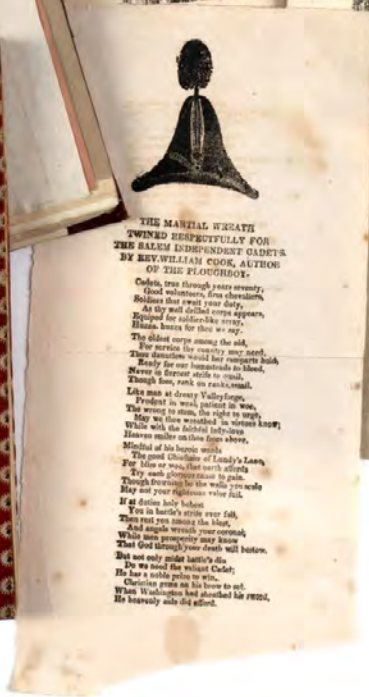 THE MARTIAL WREATH
TWINED RESPECTFULLY FOR
THE SALEM INDEPENDENT CADETS.
BY REV. WILLIAM COOK, AUTHOR
OF THE PLOUGHBOY.
Cadets, true through years seventy,
Good volunteers, firm chevaliers,
Soldiers that await your duty,
As thy well drilled corps appears,
Equipped for soldier-like array,
Huzza, huzza for thee we say.
The oldest corps among the old,
For service thy country may need,
Thou dauntless would her ramparts hold,
Ready for our homesteads to bleed,
Never in fiercest strife to quail,
Though foes, rank on ranks, assail.
Like man at dreary Valleyforge,
Prudent in weal, patient in woe,
The wrong to stem, the right to urge,
May we thee wreathed in virtues know;
While with the faithful lady-love
Heaven smiles on thee from above.
Mindful of his heroic words
The good Chieftain of Lundy's Lane,
For bliss or woe, that earth affords
Try each glorious cause to gain.
Though frowning be the walls you scale
May not your righteous valor fail.
If at duties holy behest
You in battle's strife ever fall,
Then rest you among the blest,
And angels wreath your coronal;
While men prosperity may know
That God through your death will bestow.
But not only midst battle's din
Do we need the valiant Cadet;
He has a noble prize to win,
Christian gems on his brow to set.
When Washington had sheathed his sword,
He heavenly aids did afford.